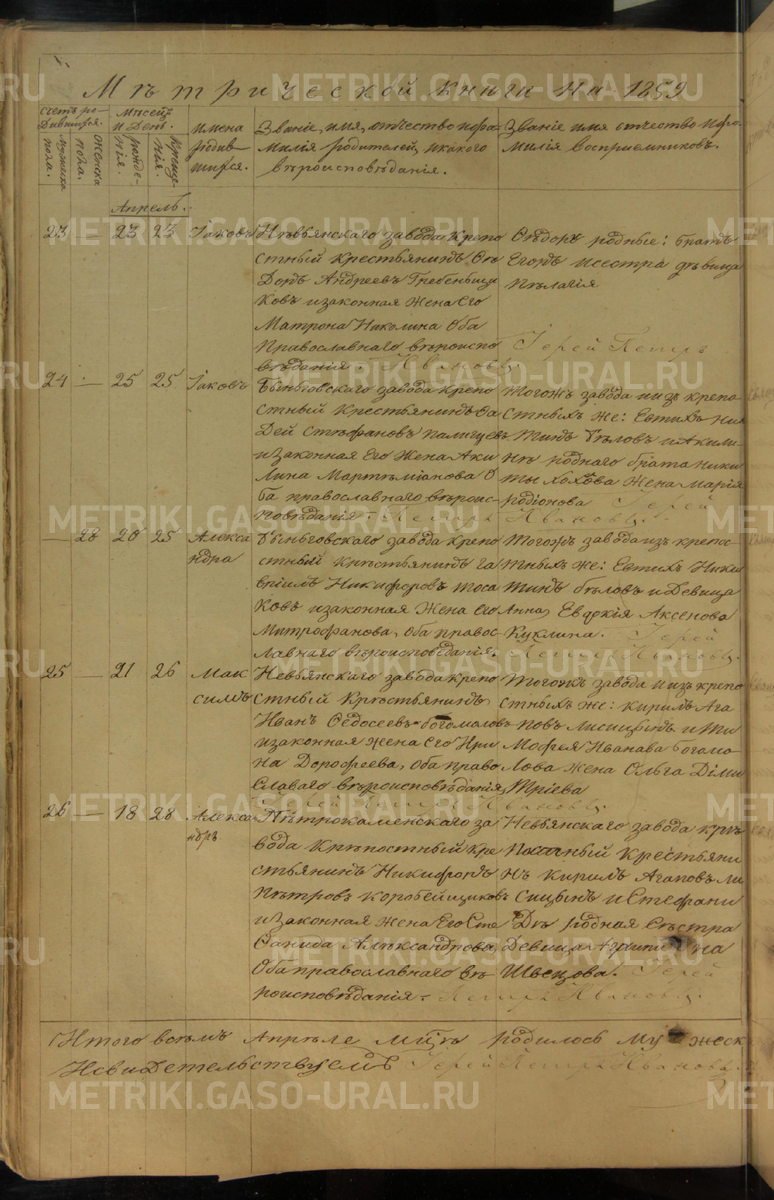 Метрической книги на 1859
Счетъ ро-
дившихся.
Мужеска
пола.
Женска
пола.
Мѣсяцъ
и День.
рожде-
нія.
Креще-
нія.
имена
родив-
шихся.
Званіе, имя, отчество и фа-
милія родителей, и какого
вѣроисповѣданія.
Званіе имя отчество и фа-
милія воспріемниковъ.
Апрель.
23 23 23 Іаковъ
Невьянскаго завода крепо
стный крестьянинъ Сѵ
доръ Андреевъ Гребеньщи
ковъ и законная жена его
Матрона Николина оба
православнаго вѣроиспо
вѣданія.
родные: братъ
Егоръ и сестра дѣвица
Пелагія
Іерей Петръ
Ивановъ
24 — 25 25 Іаковъ
Быньговскаго завода крепо
стный крестьянинъ Фа
дей Стефановъ
и законная его жена Аки
лина Мартеміанова о
ба православнаго вѣроис-
повѣданія
Тогожъ завода и изъ крепо
стныхъ же: Евтихъ Ни
титъ Бѣловъ и Акили
нѣ роднаго брата Ники
ты жена Марія
Родіонова Іерей
Петръ Ивановъ
— 28 20 25 Алекса
ндра
Быньговскаго завода крепо
стный крестьянинъ Га
вріилъ Никифоровъ Тоса
ковъ и законная жена его Анна
Митрофанова, оба правос
лавнаго вѣроисповѣданія.
Тогожъ завода изъ крепос-
тныхъ же: Евтихъ Ники
титъ Бѣловъ и девица
Евдокія Аксенова
Куклина. Іерей
Петръ Ивановъ.
25 — 21 26 Мак
симъ
Невьянскаго завода крепо
стный крестьянинъ
Иванъ Ѳедосеевъ Богомаловъ
и законная жена его Ири
на Дорофеева, оба право
славнаго вѣроисповѣданія
Тогожъ завода и изъ крепо
стныхъ же: Кирилъ Ага
повъ Лисицынъ и Ти
мофея Иванова Богомо
лова жена Ольга Діми
тріева
Іерей Петръ Ивановъ.
26 — 18 28 Алекса
ндръ
Петрокаменскаго за
вода крѣпостный кре
стьянинъ Никифоръ
Петровъ Коробейщиковъ
и законная жена его Сте
фанида Александрова
оба православнаго вѣ
роисповѣданія.
Невьянскаго завода крѣ
постный крестьяни
нъ Кирилъ Агаповъ Ли
сицынъ и Стефани
дѣ родная сестра
девица Агрипена
Швецова. Іерей
Петръ Ивановъ.
Итого всемъ Апреле м-цѣ родилось мужеск
Свидетельствуемъ Іерей Петръ Ивановъ
METRIKI.GASO-URAL.RU